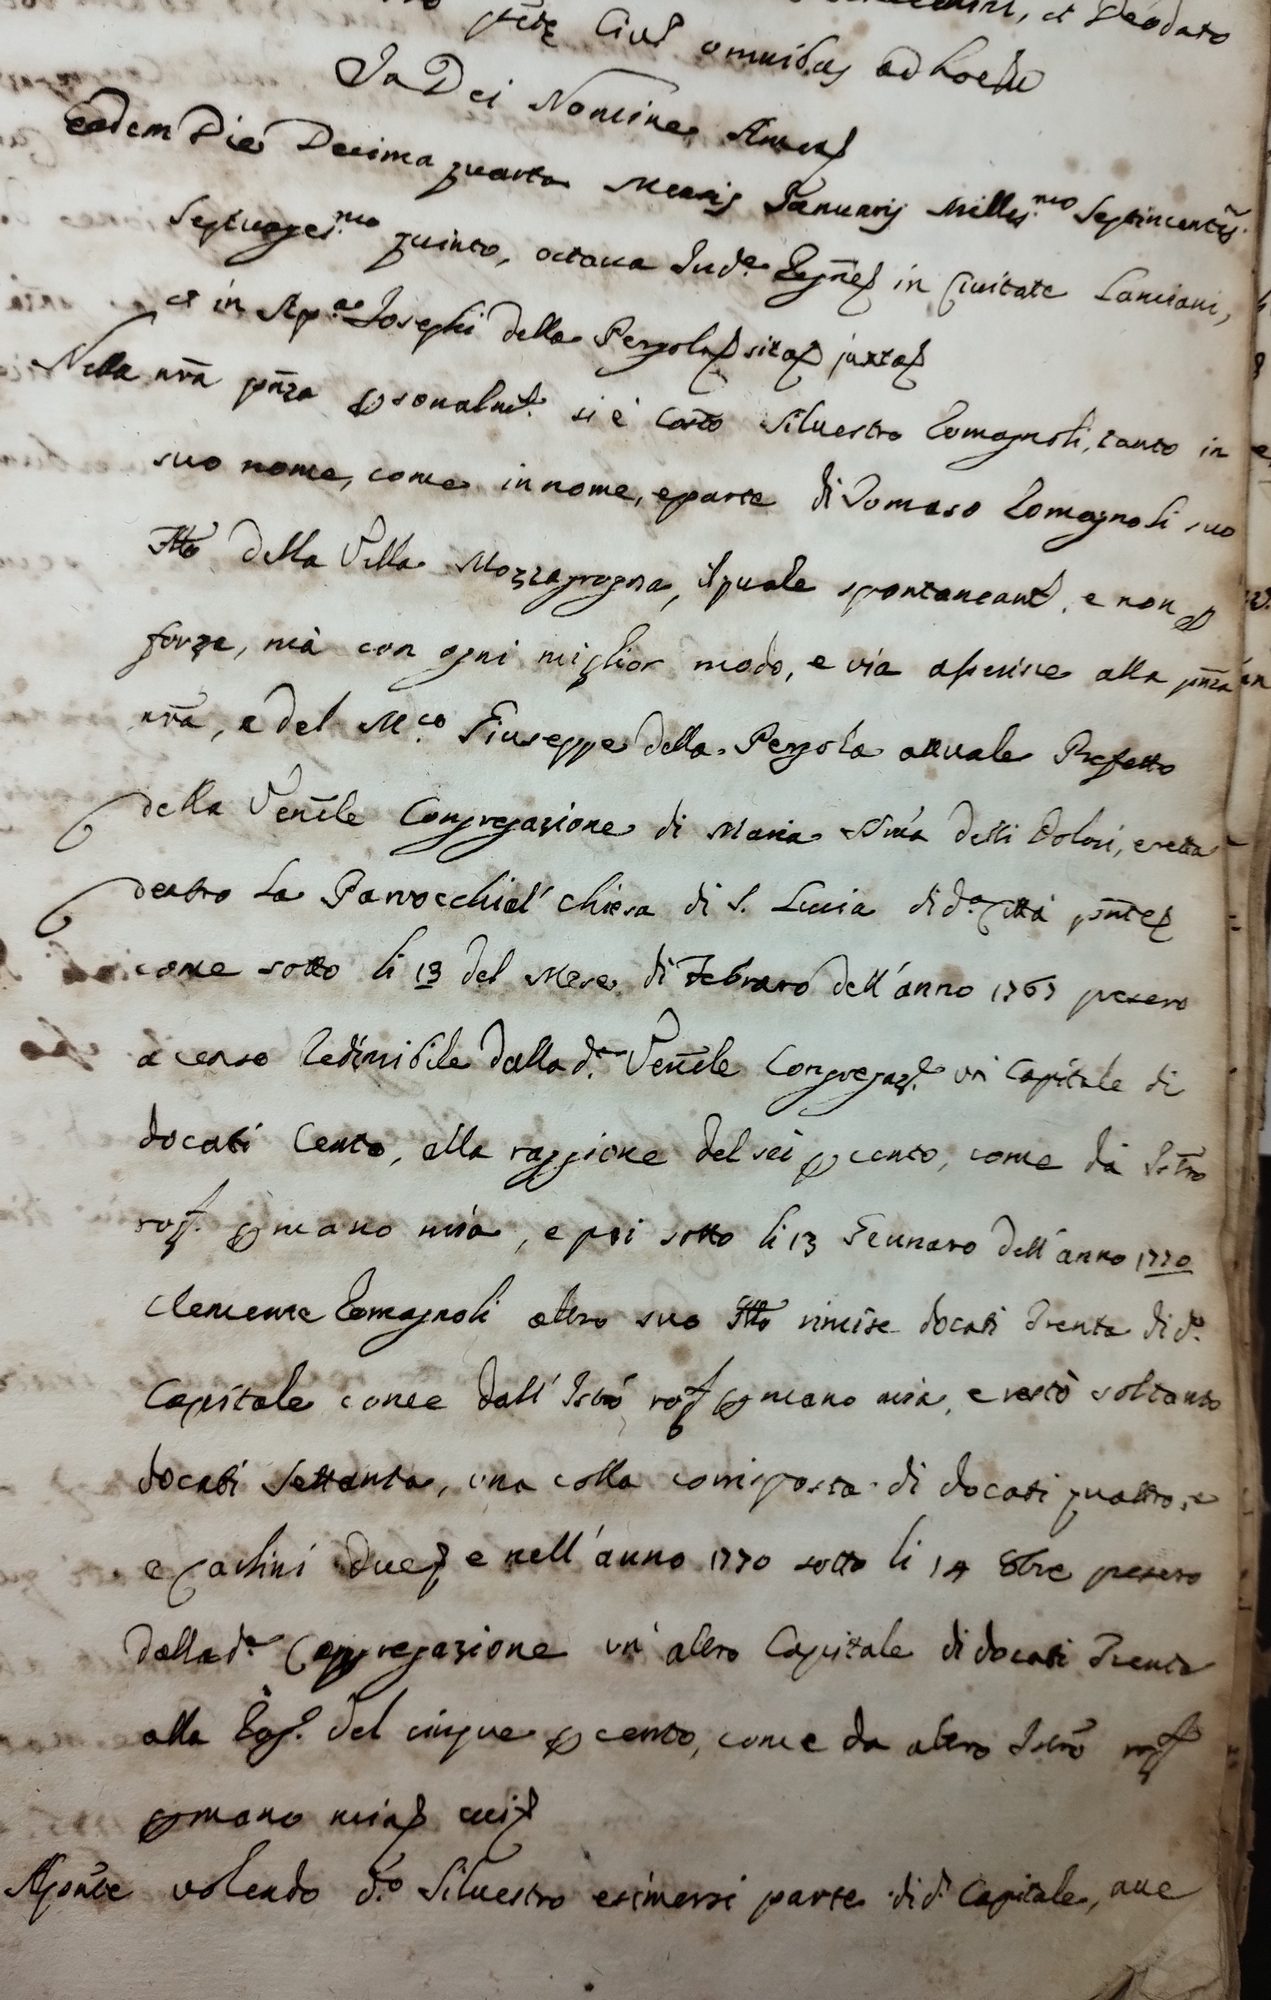 et Deodato
omnibus ad hoc
In Dei Nomine Amen
Eodem Die Decima quarta Mensis Januarij Milles.mo Septincent.
Septuages.mo quinto, octava Ind.e Regn. in Civitate Lanciani,
et in Ap.a Josephi della Pergola sita juxta
Nella nrã pnza personalmt. si è cosťo Silvestro Romagnoli, tanto in
suo nome, come in nome, e parte di Tomaso Romagnoli suo
Frło della Villa Mozzagrogna, il quale spontaneamt. e non p
forza, mà con ogni miglior modo, e via aserisce alla pnza
nrã, e del M.co Giuseppe della Pergola attuale Prefetto
della Venle Congregazione di Maria SSma delli Dolori, eretta
dentro la Parrocchial' Chiesa di S. Lucia di d.a Città pnte
come sotto li 13 del Mese di Febraro dell'anno 1767 presero
a censo redimibile dalla d.a Venle Congregaz.e un Capitale di
docati Cento, alla raggione del sei p cento, come dà Istro
rog. p mano mia, e poi sotto li 13 Gennaro dell'anno 1770
Clemente Romagnoli altro suo Frło rimise docati Trenta di d.o
Capitale come dall'Istro rog. p mano mia, e restò soltanto
docati settanta, una colla corrisposta di docati quattro, e
e Carlini due, e nell'anno 1770 sotto li 14 8bre presero
dalla d.a Congregazione un'altro Capitale di docati Trenta
alla Rag.e del cinque p cento, come da altro Istro rog.
p mano mia
Al pnte volendo d.o Silvestro esimersi parte di d.o Capitale, ave